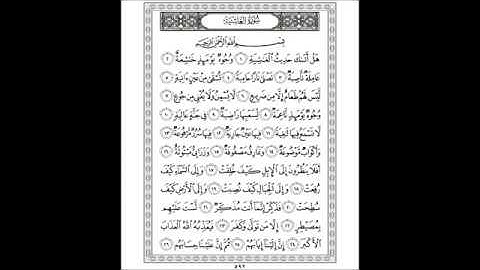 سُورَةُ الغَاشِيَةِ
بِسْمِ اللَّهِ الرَّحْمَٰنِ الرَّحِيمِ
هَلْ أَتَىٰكَ حَدِيثُ ٱلْغَٰشِيَةِ ١ وُجُوهٌ يَوْمَئِذٍ خَٰشِعَةٌ ٢
عَامِلَةٌ نَّاصِبَةٌ ٣ تَصْلَىٰ نَارًا حَامِيَةً ٤ تُسْقَىٰ مِنْ عَيْنٍ ءَانِيَةٍ ٥
لَّيْسَ لَهُمْ طَعَامٌ إِلَّا مِن ضَرِيعٍ ٦ لَّا يُسْمِنُ وَلَا يُغْنِي مِن جُوعٍ ٧
وُجُوهٌ يَوْمَئِذٍ نَّاعِمَةٌ ٨ لِّسَعْيِهَا رَاضِيَةٌ ٩ فِي جَنَّةٍ عَالِيَةٍ ١٠
لَّا تَسْمَعُ فِيهَا لَٰغِيَةً ١١ فِيهَا عَيْنٌ جَارِيَةٌ ١٢ فِيهَا سُرُرٌ مَّرْفُوعَةٌ ١٣
وَأَكْوَابٌ مَّوْضُوعَةٌ ١٤ وَنَمَارِقُ مَصْفُوفَةٌ ١٥ وَزَرَابِيُّ مَبْثُوثَةٌ ١٦
أَفَلَا يَنظُرُونَ إِلَى ٱلْإِبِلِ كَيْفَ خُلِقَتْ ١٧ وَإِلَى ٱلسَّمَآءِ كَيْفَ
رُفِعَتْ ١٨ وَإِلَى ٱلْجِبَالِ كَيْفَ نُصِبَتْ ١٩ وَإِلَى ٱلْأَرْضِ كَيْفَ
سُطِحَتْ ٢٠ فَذَكِّرْ إِنَّمَآ أَنتَ مُذَكِّرٌ ٢١ لَّسْتَ عَلَيْهِم
بِمُصَيْطِرٍ ٢٢ إِلَّا مَن تَوَلَّىٰ وَكَفَرَ ٢٣ فَيُعَذِّبُهُ ٱللَّهُ ٱلْعَذَابَ
ٱلْأَكْبَرَ ٢٤ إِنَّ إِلَيْنَآ إِيَابَهُمْ ٢٥ ثُمَّ إِنَّ عَلَيْنَا حِسَابَهُم ٢٦
٥٩٢